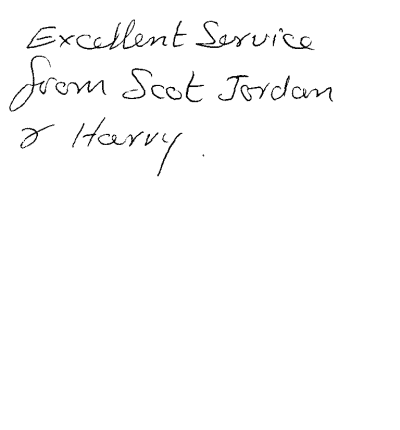 Excellent Service
from Scot Jordan
& Harry.